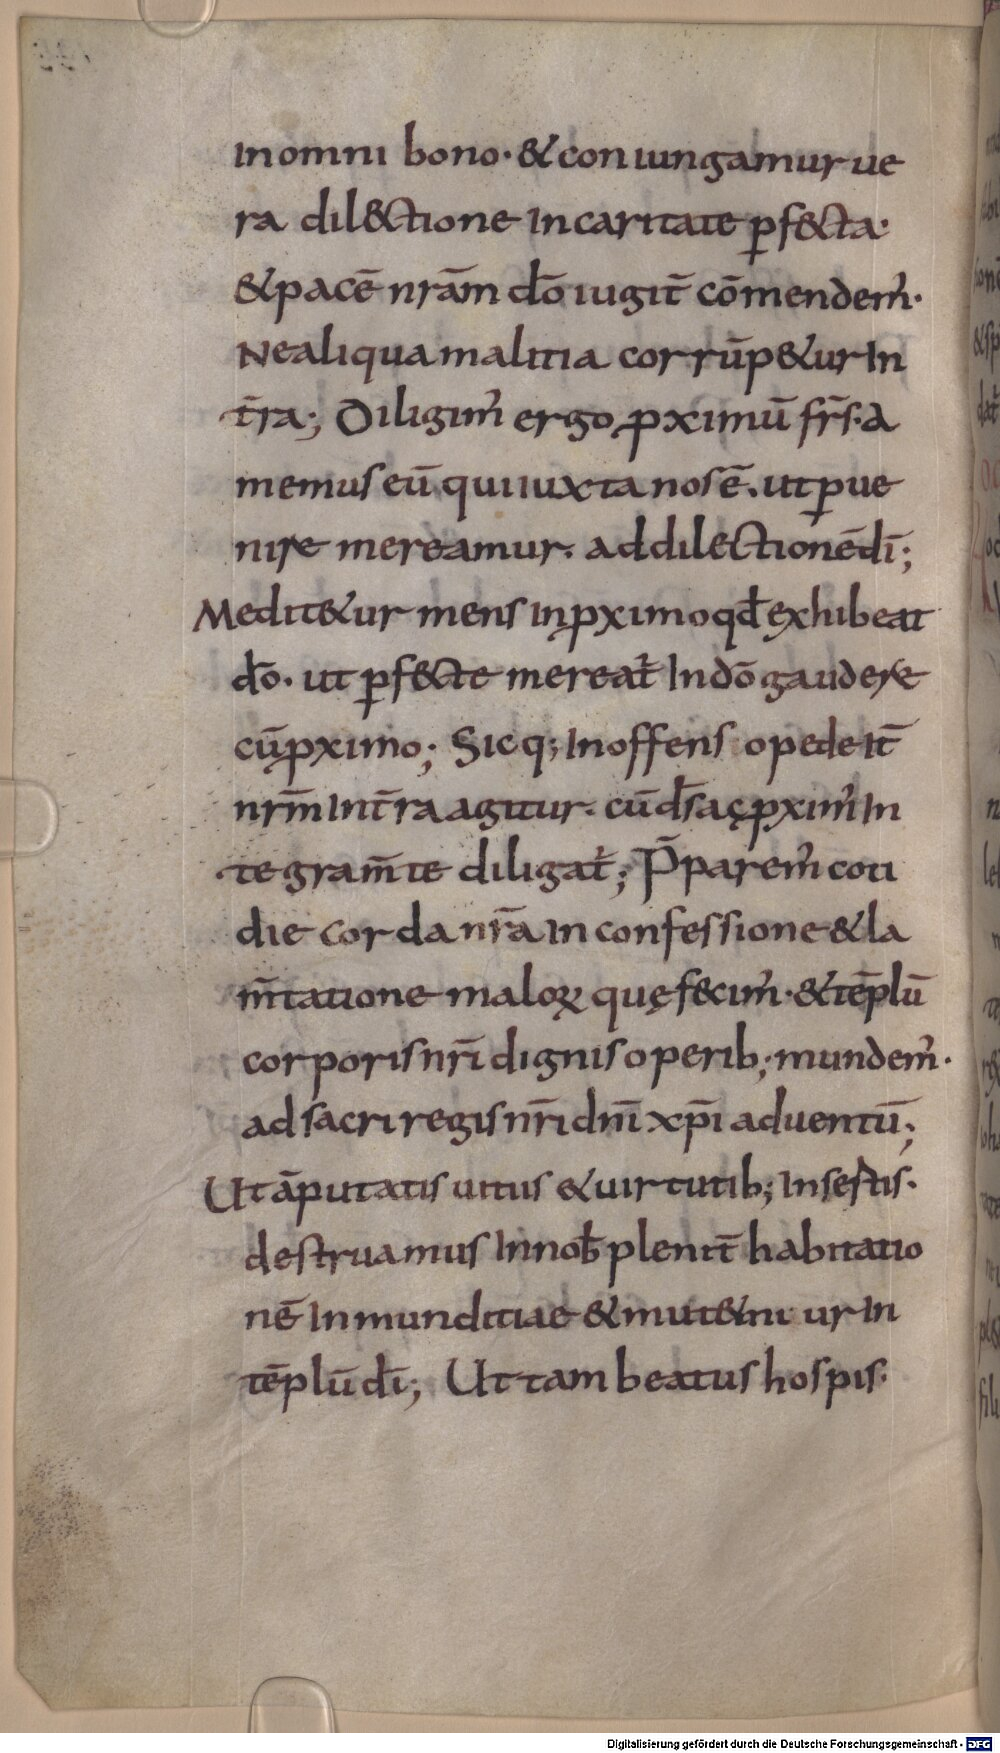 In omni bono· & coniungamur ue
ra dil&tione In caritate ꝑf&ta·
& pacē nr̄am dō iugit̄ cōmendem᾽·
Ne aliqua malitia corrūp&ur In
t̄ra; Diligim᾽ ergo ꝓximū fr̄s· A
memus eū qui iuxta nos ē· ut ꝑue
nire mereamur· ad dilectionē dī;
Medit&ur mens In ꝓximo qđ exhibeat
dō· ut ꝑf&te mereat᾽ In dō gaudere
cū ꝓximo; Sicq; Inoffens opede It̄
nr̄m In t̄ra agitur· cū d̄s ac ꝓxim᾽ In
tegram̄te diligat᾽; P̄parem᾽ coti
die corda nr̄a In confessione & la
m̄tatione maloꝝ quę fecim᾽· & tēplū
corporis nr̄i dignis operib; mundem᾽·
ad sacri regis nr̄i dnī xp̄i aduentū;
Ut āputatis uitiis & uirtutib; Insertis·
destruamus In nob̄ plenit̄ habitatio
nē Inmunditiae & mut&ni ur In
tēplū dī; Ut tam beatus hospis·
Digitalisierung gefördert durch die Deutsche Forschungsgemeinschaft - DFG